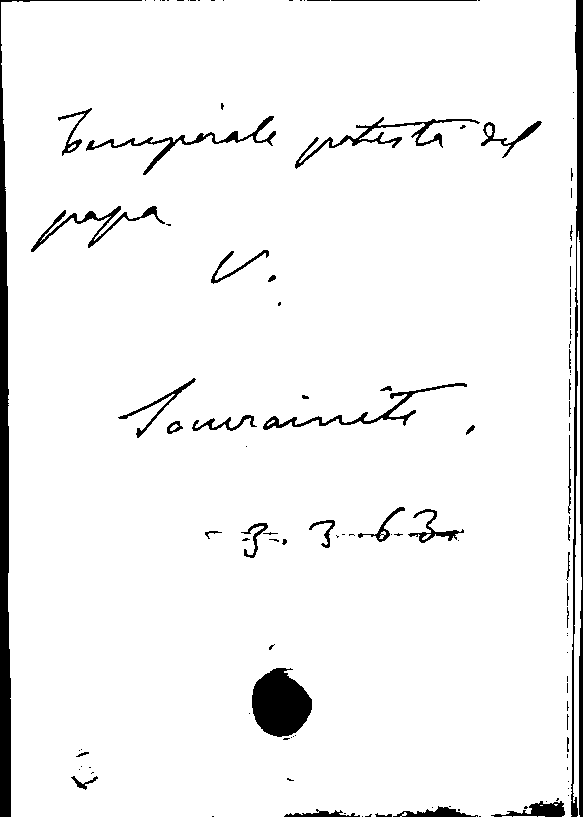 Temporale potestà del
papa
V.
Souverainété.
3.3.63